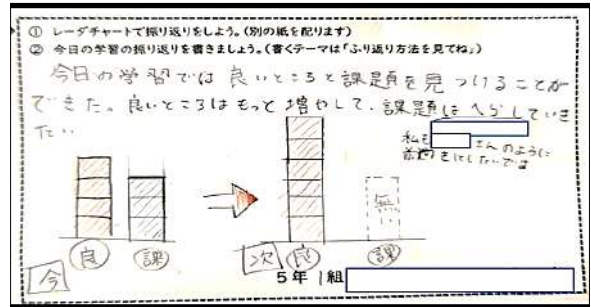 ① レーダチャートで振り返りをしよう。(別の紙を配ります)
② 今日の学習の振り返りを書きましょう。(書くテーマは「ふり返り方法を見てね」)
今日の学習では良いところと課題を見つけることが
できた。良いところはもっと増やして、課題はへらしていき
たい
私も
さんのように
無い
良
課
次
良
課
今
5年1組